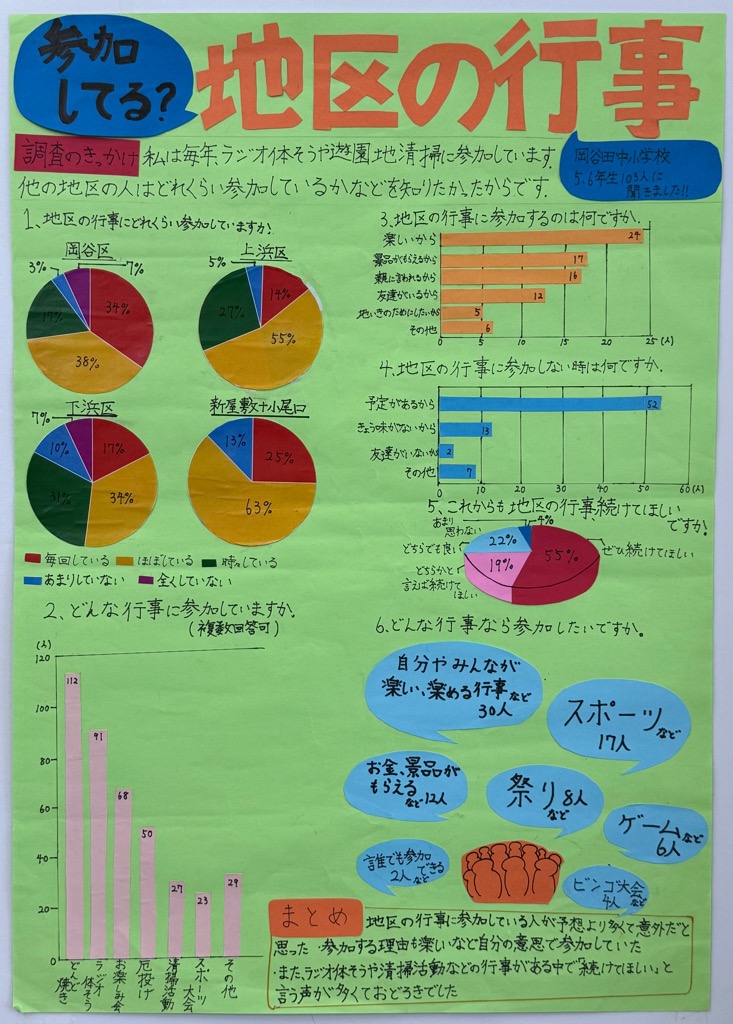 参加
してる?
地区の行事
調査のきっかけ 私は毎年、ラジオ体そうや遊園地清掃に参加しています。
他の地区の人はどれくらい参加しているかなどを知りたかったからです。
岡谷田中小学校
5.6年生103人に
聞きました!!
1、地区の行事にどれくらい参加していますか?
岡谷区
3%
7%
34%
17%
38%
上浜区
5%
14%
27%
55%
下浜区
7%
10%
17%
31%
34%
新屋敷+小尾口
13%
25%
63%
毎回している
ほぼしている
時々している
あまりしていない
全くしていない
2、どんな行事に参加していますか?
(複数回答可)
(人)
120
100
80
60
40
20
0
112
91
68
50
27
23
29
どんど焼き
ラジオ体そう
お楽しみ会
厄投げ
清掃活動
スポーツ大会
その他
3、地区の行事に参加するのは何ですか。
楽しいから
24
景品がもらえるから
17
親に言われるから
16
友達がいるから
12
地いきのためにしたいから
5
その他
6
0 5 10 15 20 25 (人)
4、地区の行事に参加しない時は何ですか。
予定があるから
52
きょう味がないから
13
友達がいないから
2
その他
7
0 10 20 30 40 50 60 (人)
5、これからも地区の行事続けてほしい
ですか?
あまり
思わない
4%
どちらでも良い
22%
どちらかと
言えば続けて
ほしい
19%
55%
ぜひ続けてほしい
6、どんな行事なら参加したいですか。
自分やみんなが
楽しい、楽める行事など
30人
スポーツなど
17人
お金、景品が
もらえる
など12人
祭り8人
など
ゲームなど
6人
誰でも参加
できる
2人など
ビンゴ大会
4人など
まとめ 地区の行事に参加している人が予想より多くて意外だと
思った・参加する理由も楽しいなど自分の意思で参加していた
・また、ラジオ体そうや清掃活動などの行事がある中で「続けてほしい」と
言う声が多くておどろきでした